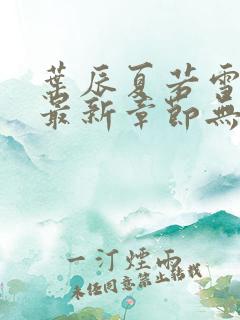 葉辰夏若雪
最新章節無
一汀煙雨
未经同意禁止转载